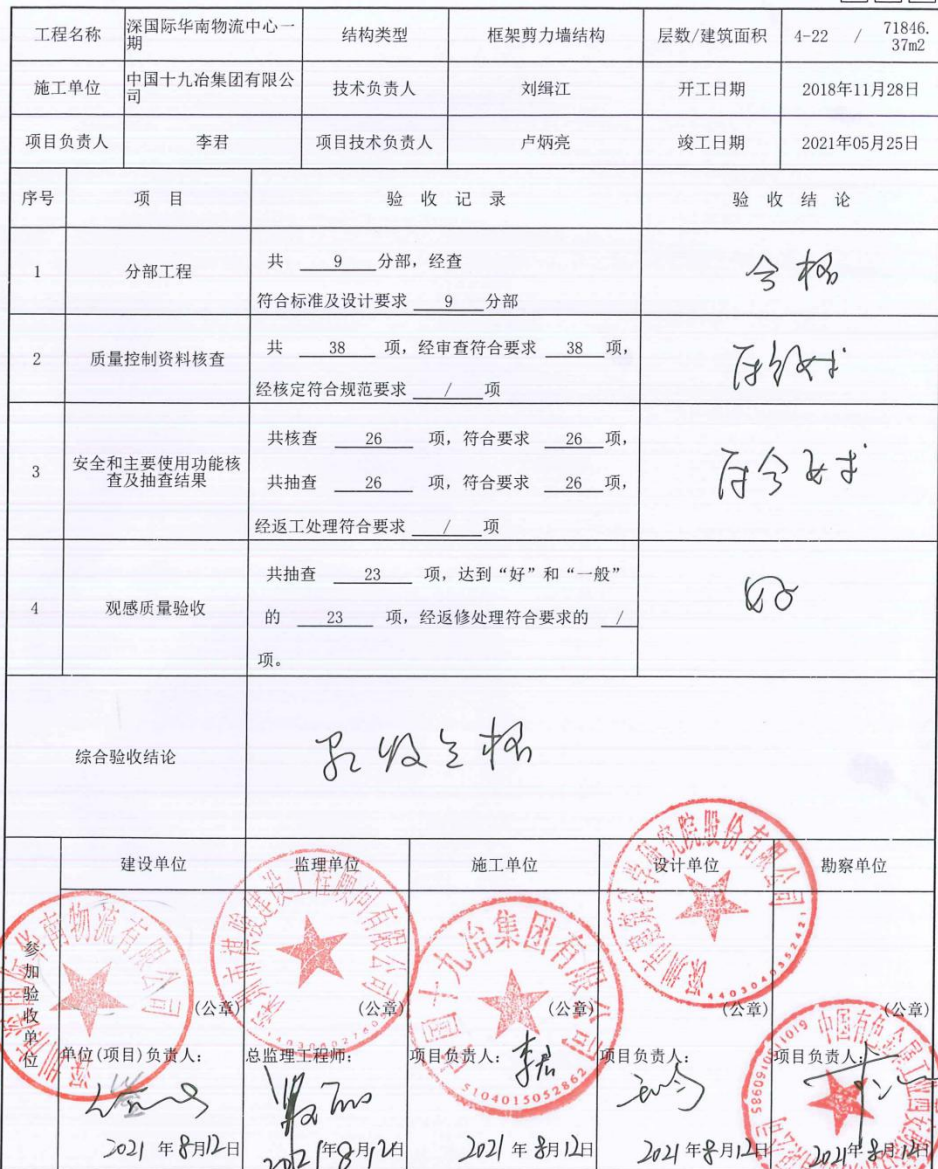 工程名称 深国际华南物流中心一期 结构类型 框架剪力墙结构 层数/建筑面积 4-22 / 71846.37m2
施工单位 中国十九冶集团有限公司 技术负责人 刘缉江 开工日期 2018年11月28日
项目负责人 李君 项目技术负责人 卢炳亮 竣工日期 2021年05月25日
序号 项 目 验 收 记 录 验 收 结 论
1 分部工程 共 9 分部，经查
符合标准及设计要求 9 分部
合格
2 质量控制资料核查 共 38 项，经审查符合要求 38 项，
经核定符合规范要求 / 项
符合要求
3 安全和主要使用功能核查及抽查结果 共核查 26 项，符合要求 26 项，
共抽查 26 项，符合要求 26 项，
经返工处理符合要求 / 项
符合要求
4 观感质量验收 共抽查 23 项，达到“好”和“一般”
的 23 项，经返修处理符合要求的 /
项。
好
综合验收结论 验收合格
参加验收单位
建设单位 监理单位 施工单位 设计单位 勘察单位
(公章) (公章) (公章) (公章) (公章)
单位(项目)负责人： 总监理工程师： 项目负责人：李君 项目负责人： 项目负责人：
2021年8月12日 2021年8月12日 2021年8月12日 2021年8月12日 2021年8月12日
华南物流有限公司
建设工程顾问有限公司
中国十九冶集团有限公司
5104015052862
研究院股份有限公司
4403040352421
中国有色金属工业